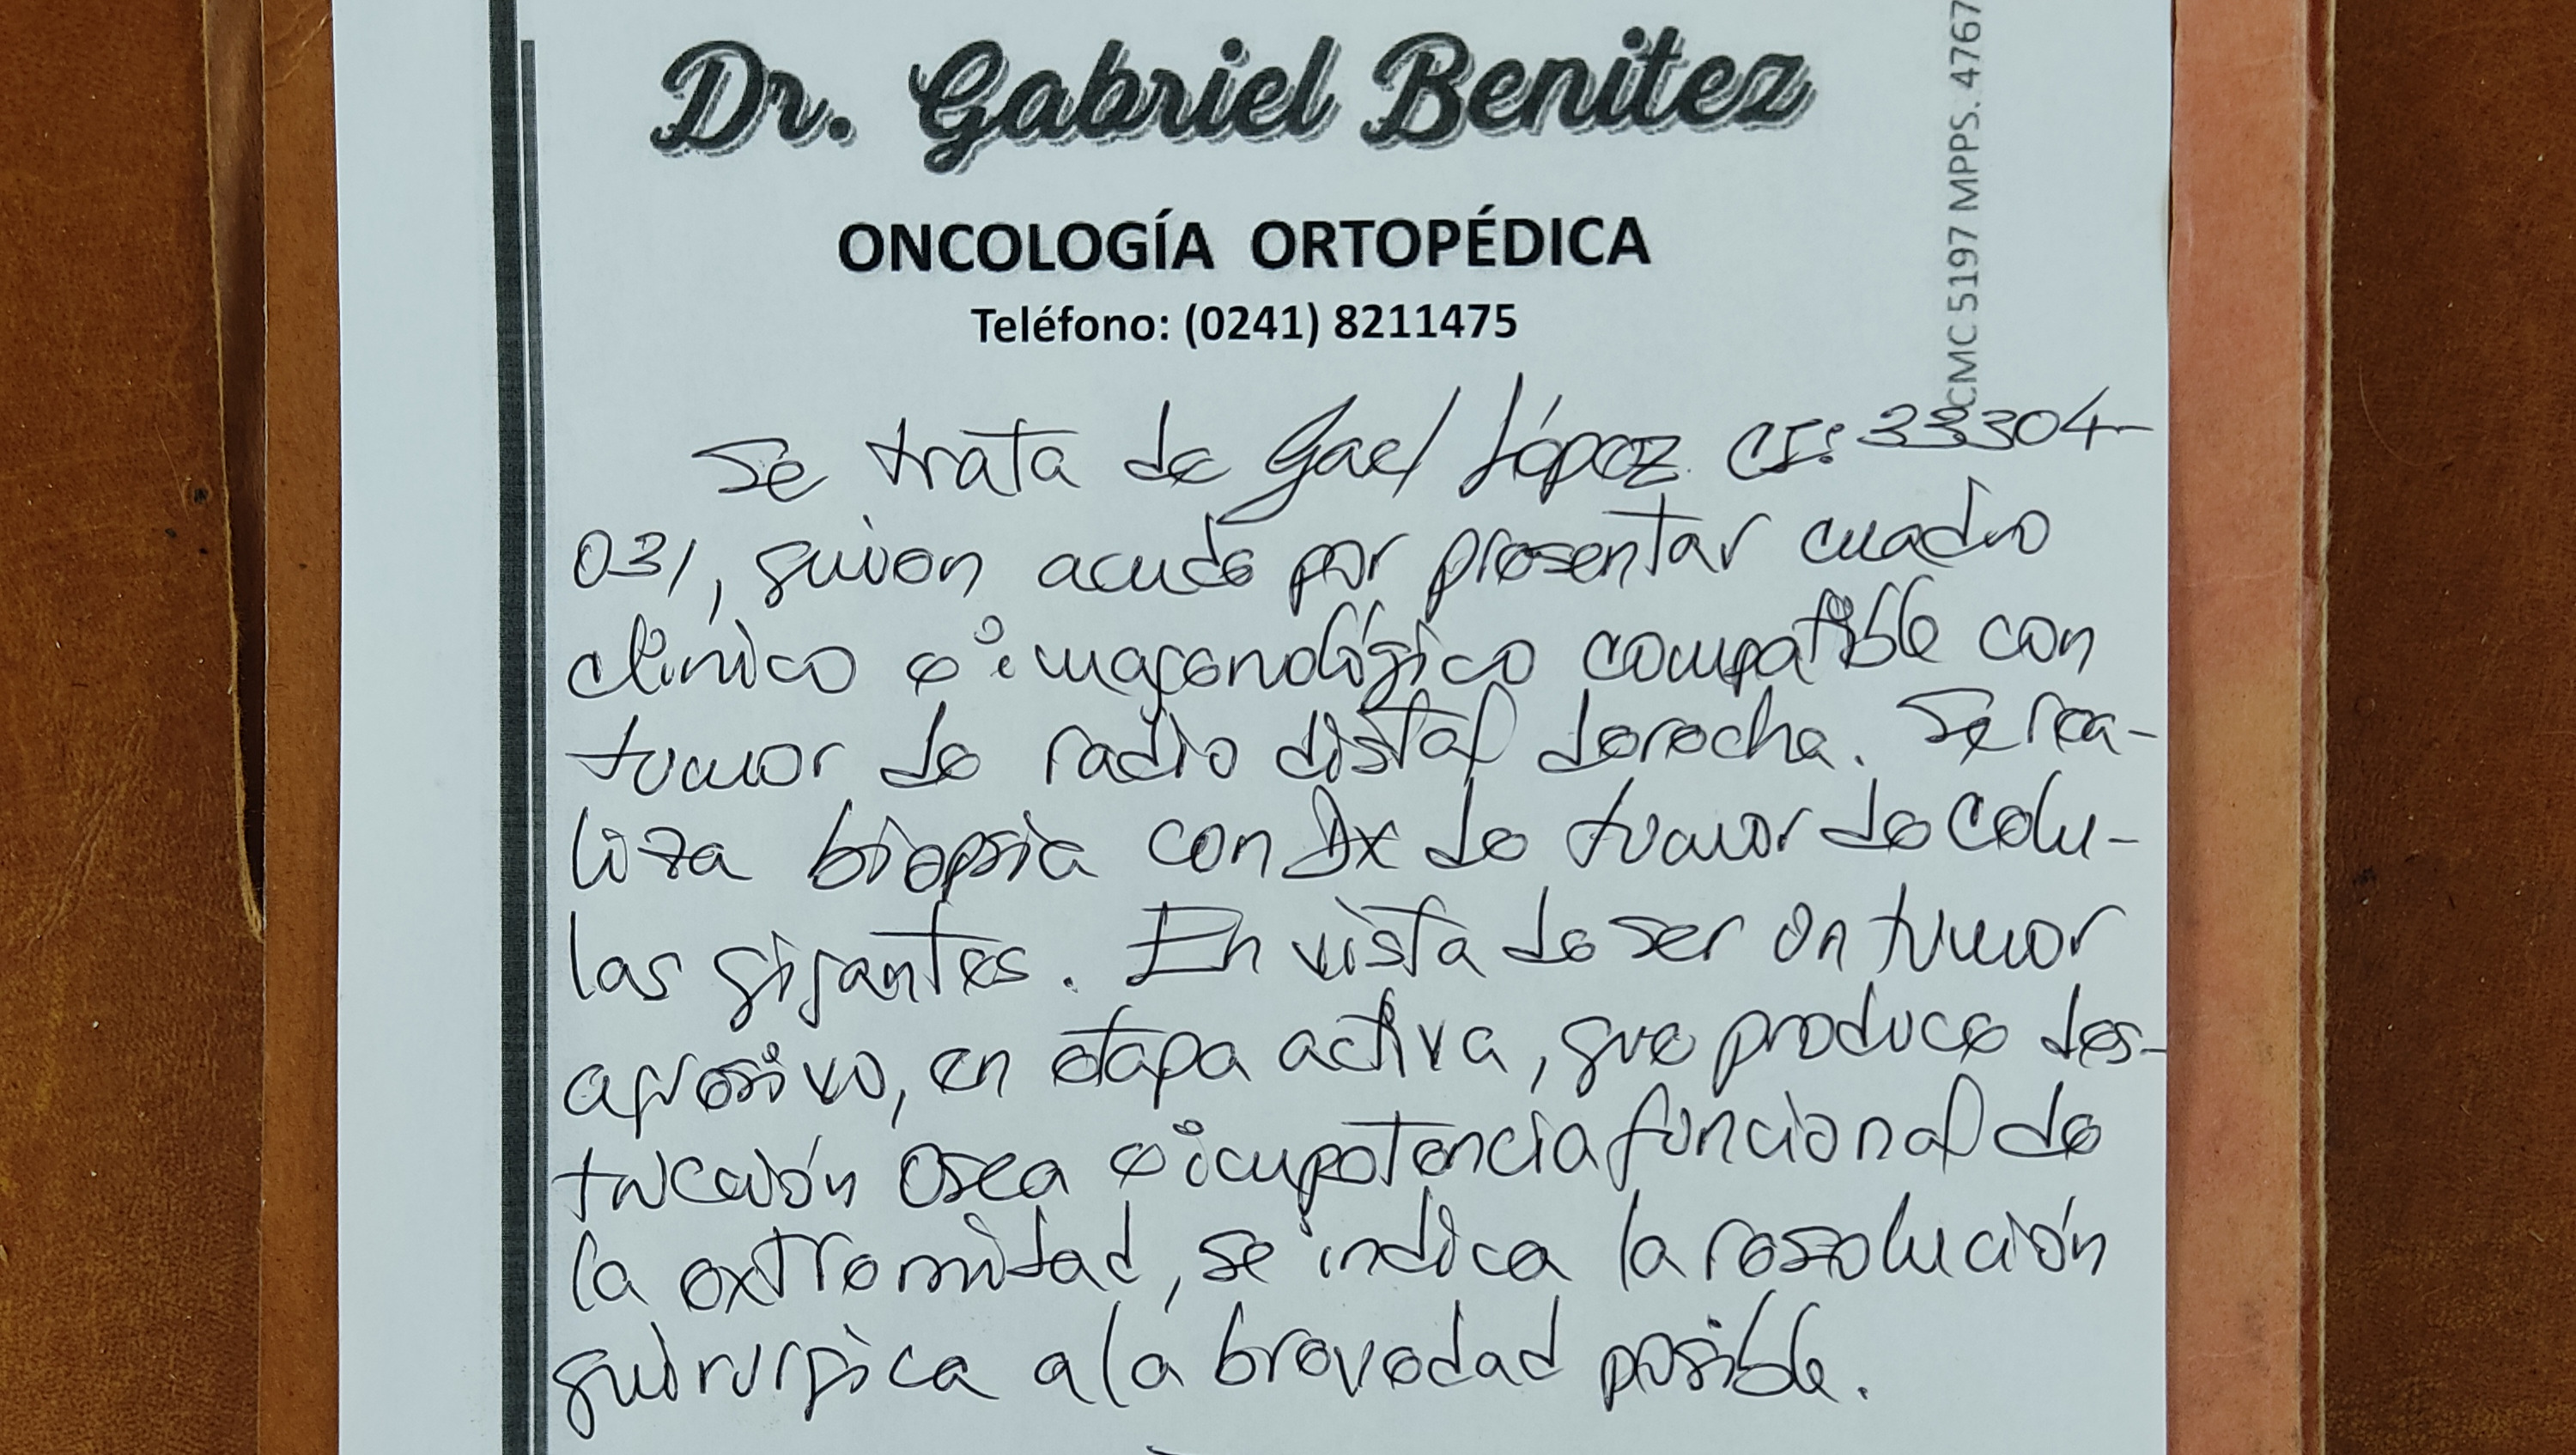 Dr. Gabriel Benitez
ONCOLOGÍA ORTOPÉDICA
Teléfono: (0241) 8211475
CMC 5197 MPPS. 4767
Se trata de Gael López CI: 33304
031, quien acude por presentar cuadro
clínico e imagenológico compatible con
tumor de radio distal derecha. Se rea-
liza biopsia con Dx de tumor de celu-
las gigantes. En vista de ser un tumor
agresivo, en etapa activa, que produce des-
trucción osea e impotencia funcional de
la extremidad, se indica la resolución
quirurgica a la brevedad posible.